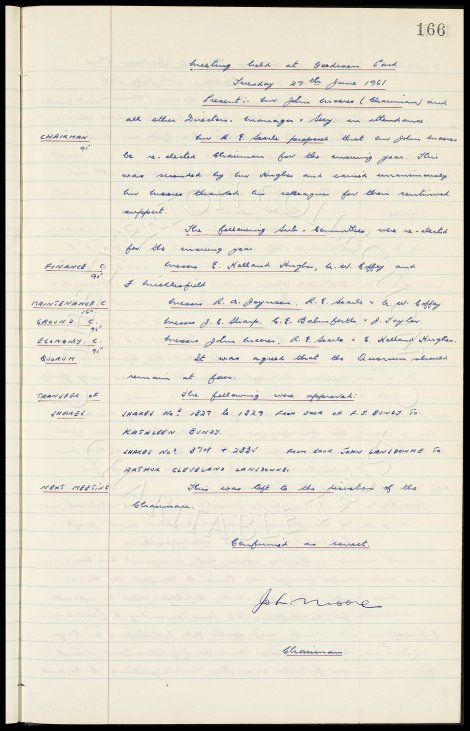 166
Meeting held at Goodison Park
Tuesday 27th June 1961
Present:- Mr John Moores (Chairman) and
all other Directors. Manager & Secy in attendance.
CHAIRMAN Mr R. E. Searle proposed that Mr John Moores
be re-elected Chairman for the ensuing year. This
was seconded by Mr Hughes and carried unanimously.
Mr Moores thanked his colleagues for their continued
support.
The following Sub-Committees were re-elected
for the ensuing year.
FINANCE. C. Messrs E. Holland Hughes, C. W. Coffey and
F. Micklesfield
MAINTENANCE. C Messrs R. A. Joynson, R. E. Searle & C. W. Coffey
GROUND. C. Messrs J. C. Sharp, C. E. Balmforth & J. Taylor.
ECONOMY. C. Messrs John Moores, R. E. Searle & E. Holland Hughes.
QUORUM It was agreed that the Quorum should
remain at four.
TRANSFER OF SHARES The following were approved:
SHARES Nos. 1827 to 1829 FROM EXOR OF F. J. BUNDY TO
KATHLEEN BUNDY.
SHARES Nos. 374 + FROM EXOR JOHN LANSDOWNE TO
ARTHUR CLEVELAND LANSDOWNE.
NEXT MEETING This was left to the discretion of the
Chairman.
Confirmed as correct.
John Moores
Chairman